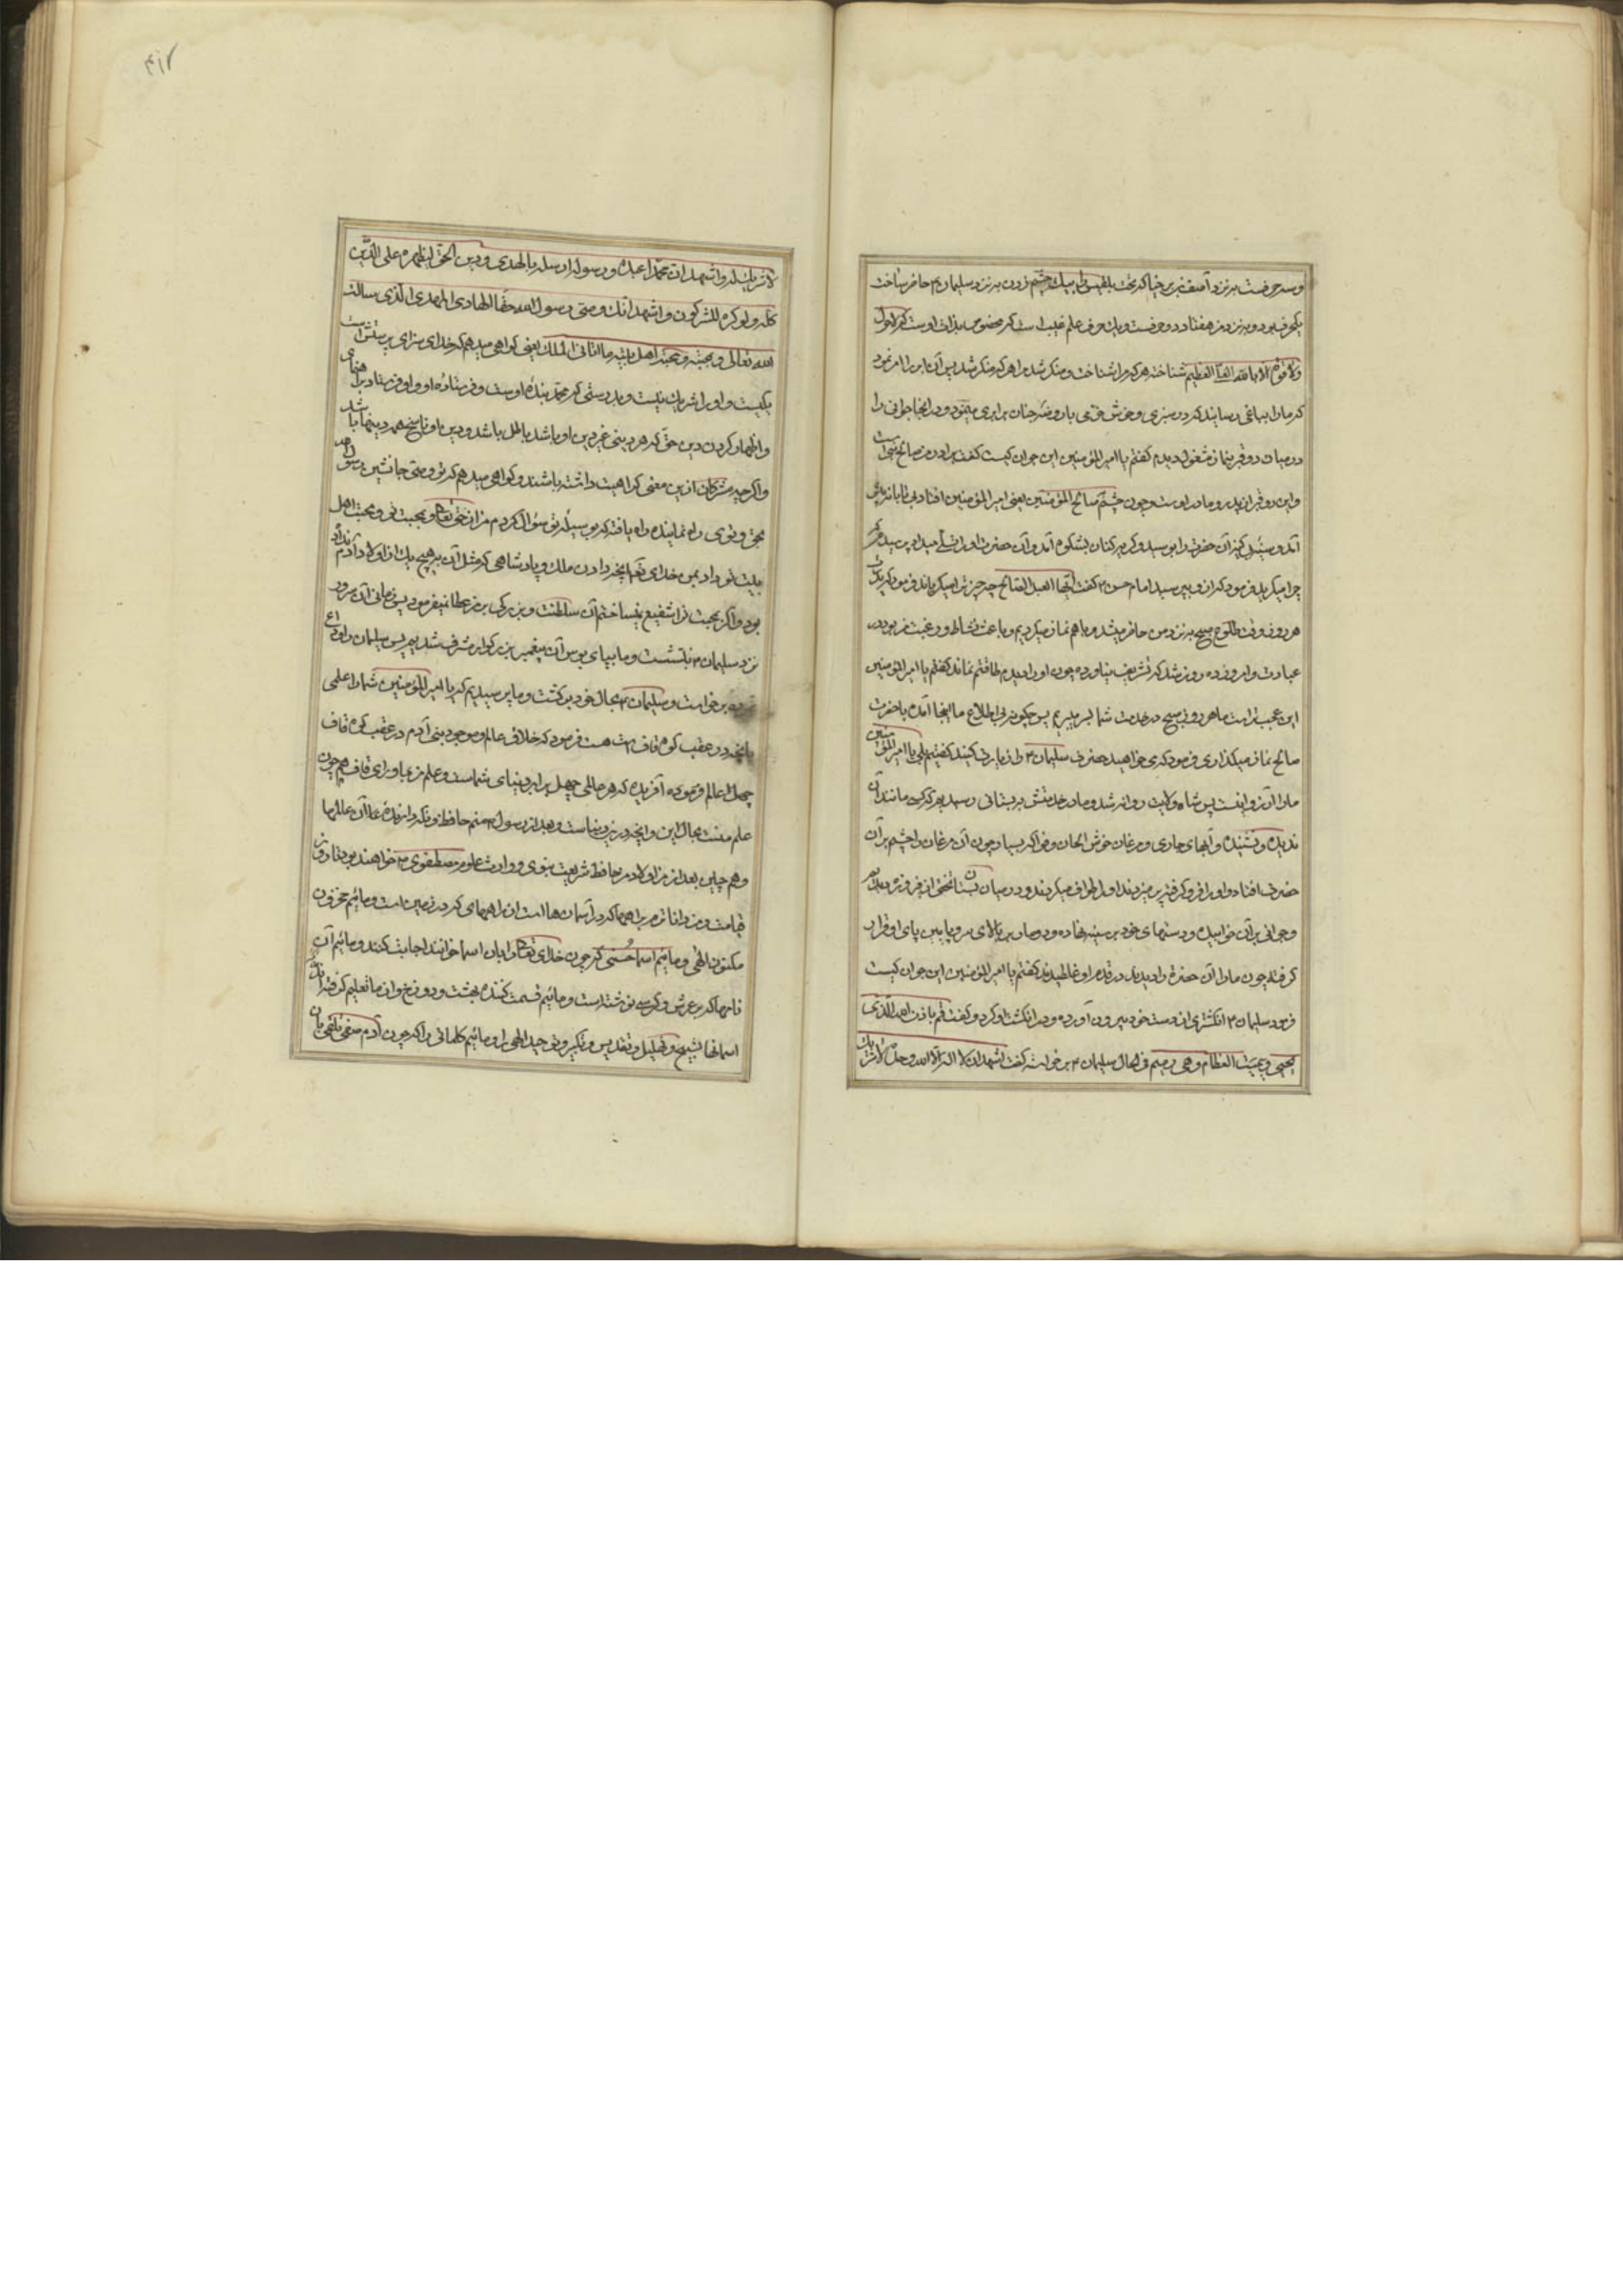 و سه حرفست به نزد آصف بن برخیا که تخت بلقیس را بیک چشم زدن به نزد سلیمان ۴ حاضر ساخت
یکحرف بود و به نزد من هفتاد و دو حرفست و یک حرف علم غیب است که مخصوص بذات اوست که لاحول
ولا قوة الا بالله العلی العظیم شناخت هر که مرا شناخت و منکر شد مرا هر که منکر شد پس آن ابر را امر نمود
که ما را بباغی رساند که در سبزی و خوشی و خرمی با روضه جنان برابری مینمود و در انجا جوانی را
در میان دو قبر بنماز مشغول دیدم گفتم یا امیر المؤمنین این جوان کیست گفت برادرم صالح نبی است
و این دو قبر از پدر و مادر اوست و چون چشم صالح المؤمنین یعنی امیر المؤمنین افتاد بی تابانه پیش
آمد و سینه بی کینه آن حضرت را بوسید و گریه کنان بشکوه آمد و آن حضرت او را تسلی میداد پرسیدم که
چرا میگرید فرمود که از و بپرسید امام حسن ۴ گفت ایها العبد الصالح چه چیز ترا میگریاند فرمود که پدرت
هر روز وقت طلوع صبح به نزد من حاضر میشد و با هم نماز میکردیم و باعث نشاط و رغبت من بود در
عبادت و امروز ده روز شد که تشریف نیاورده چون او را دیدم طاقتم نماند گفتم یا امیر المؤمنین
این عجیب تر است ما هر روز صبح در خدمت شما بسر میبریم پس چگونه بی اطلاع ما اینجا آمده با حضرت
صالح نماز میگذاری فرمود که می خواهید حضرت سلیمان ۴ را زیارت کنید گفتیم بلی یا امیر المؤمنین
ما را آرزو اینست پس شاه ولایت روانه شد و ما در خدمتش به بستانی رسیدیم که کسی مانند آن
ندیده و نشنیده و آبهای جاری و مرغان خوش الحان و فواکه بسیار چون آن مرغان را چشم بر آن
حضرت افتاد و او را فرو گرفته پر میزدند و او را طواف میکردند و در میان بستان تختی از فیروزه دیدیم
و جوانی بر آن خوابیده و دستهای خود بر سینه نهاده و دو مار بر بالای سر و پایین پای او قرار
گرفته چون مار ان آن حضرة را دیدند در قدم او غلطیدند گفتم یا امیر المؤمنین این جوان کیست
فرمود سلیمان ۴ انگشتری از دست خود بیرون آورده و در انگشت او کرد و گفت قم باذن الله الذی
یحیی و یمیت العظام و هی رمیم فی الحال سلیمان ۴ بر خواسته گفت اشهد ان لا اله الا الله وحده لا شریک
لا شریک له و اشهد ان محمدا عبده و رسوله ارسله بالهدی و دین الحق لیظهره علی الدین
کله و لو کره المشرکون و اشهد انک وصی رسول الله حقا الهادی المهدی الذی سالت
الله تعالی و بحبته و محبة اهل بیته ما اتانی الملک یعنی گواهی میدهم که خدای سزای پرستش است
یکیست و او را شریک نیست و بدرستی که محمد بنده اوست و فرستاده او و او را فرستاد برهنمای
و اظهار کردن دین حق که هر دینی غیر دین او باشد باطل باشد و دین او ناسخ همه دینها باشد
و اگر چه مشرکان ازین معنی کراهیت داشته باشند و گواهی میدهم که تو وصی جانشین رسول
بحق و توی راه نماینده راه یافته که بوسیله تو سؤال کردم من از حق تعالی و بمحبت تو و محبت اهل
بیت تو داد بمن خدای تعالی آنچه داد از ملک و پادشاهی که مثل آن به هیچ یک از اولاد آدم نداد
بود و اگر محبت ترا شفیع نمیساختم آن سلطنت و بزرگی بمن عطا نمیفرمود پس زمانی آن سرور
نزد سلیمان ۴ بنشست و ما بپای بوس آن پیغمبر بزرگوار مشرف شدیم پس سلیمان را وداع
نموده برخواست و سلیمان ۴ بحال خود برگشت و ما پرسیدیم که یا امیر المؤمنین شما را علمی
بآنچه در عقب کوه قاف است هست فرمود که خلاق عالم و موجد بنی آدم در عقب کوه قاف
چهل عالم فرموده آفریده که هر عالمی چهل برابر دنیای شماست و علم من بماورای قاف هم چون
علم منست بحال این و آنچه در این دنیاست و بعد از رسول ۴ منم حافظ و نگه دارنده ما آن عالمها
و هم چنین بعد از من اولادم حافظ شریعت نبوی و وارث علوم مصطفوی ۴ خواهند بود تا روز
قیامت و من داناترم براههما که در آسمان ها است از راههای که در زمین است و مائیم مخزون
مکنون الهی و مائیم اسما حسنی که چون خدای تعالی را بان اسما خوانند اجابت کنند و مائیم آن
نامها که بر عرش و کرسی نوشته است و مائیم قسمت کننده بهشت و دوزخ و از ما تعلیم گرفته اند
اسمانها تسبیح و تهلیل و تقدیس و تکبیر و توحید الهی را و مائیم کلماتی را که چون آدم صفی تلقی بان